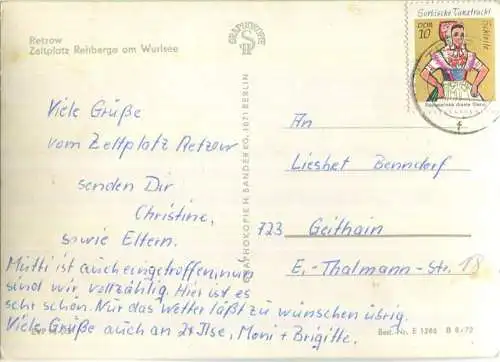 Retzow
Zeltplatz Rehberge am Wurlsee
Viele Grüße
vom Zeltplatz Retzow
senden Dir
Christine,
sowie Eltern.
Mutti ist auch eingetroffen, nun
sind wir vollzählig. Hier ist es
sehr schön. Nur das Wetter läßt zu wünschen übrig.
Viele Grüße auch an Ilse, Moni + Brigitte.
GRAPHOKOPIE H. SANDER KG, 1071 BERLIN
Sorbische Tanztracht
Schleife
DDR
10
An
Lieshet Benndorf
723 Geithain
E.-Thälmann-Str. 18
Best.-Nr. E 1286 B 6/72